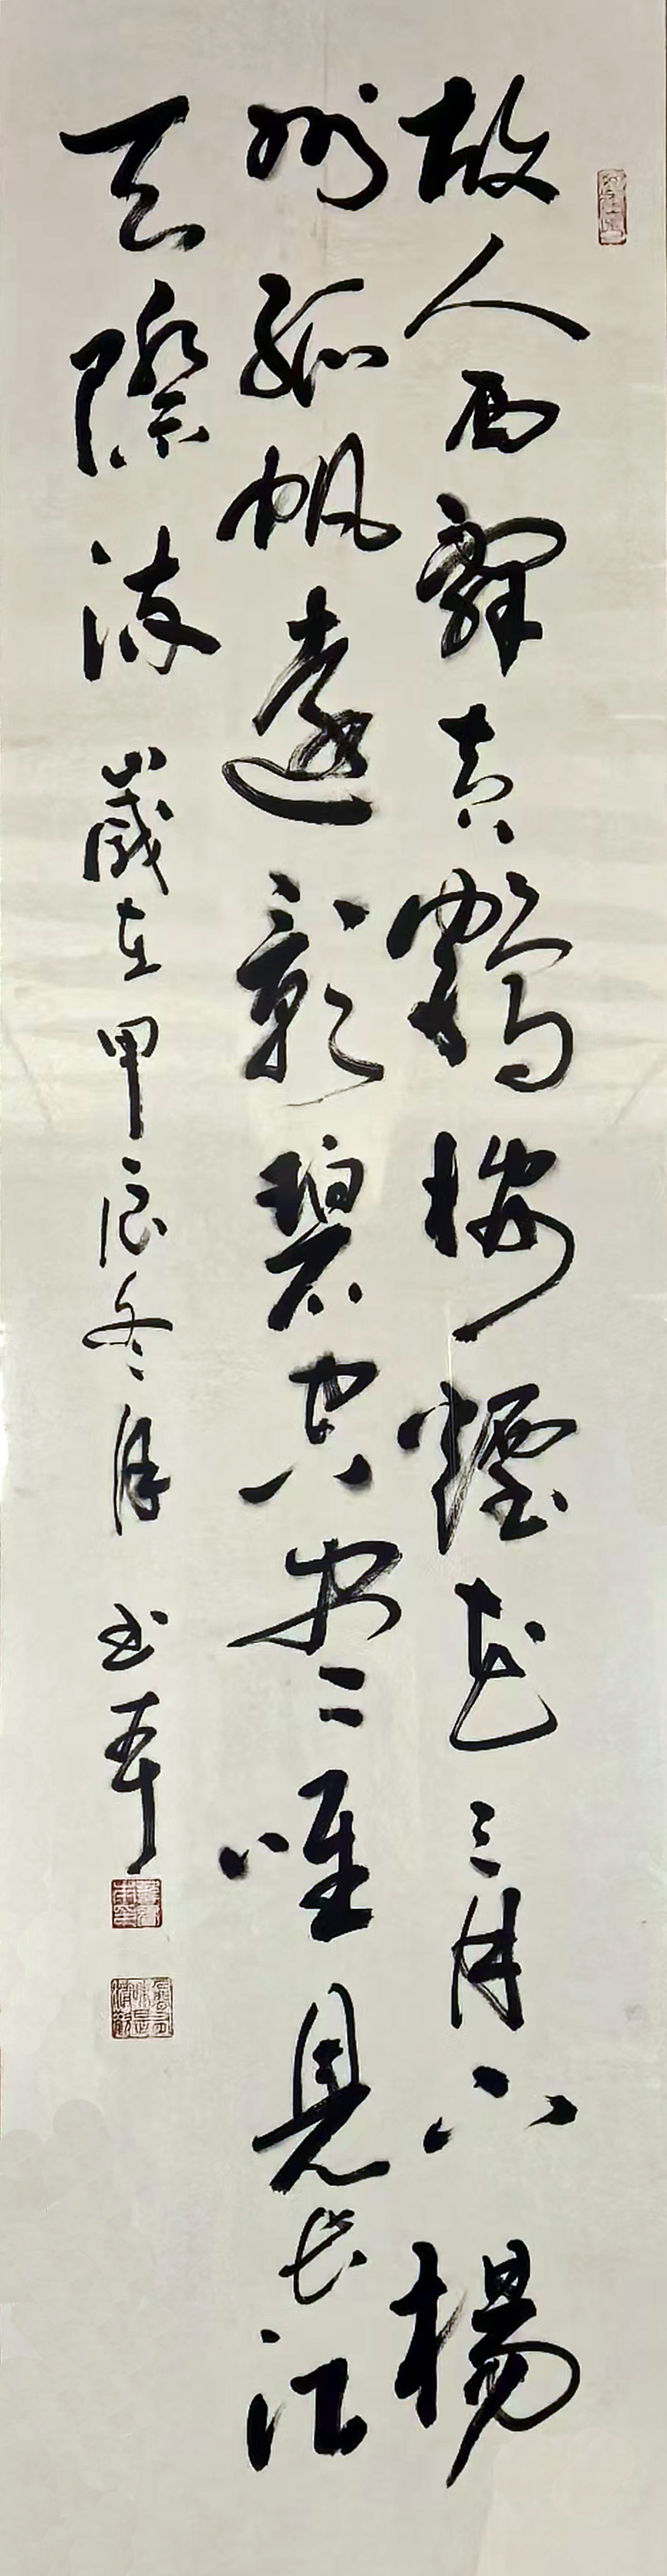 故人西辭黃鶴樓煙花三月下楊
州孤帆遠影碧空尽唯見長江
天際流 歲在甲辰冬月